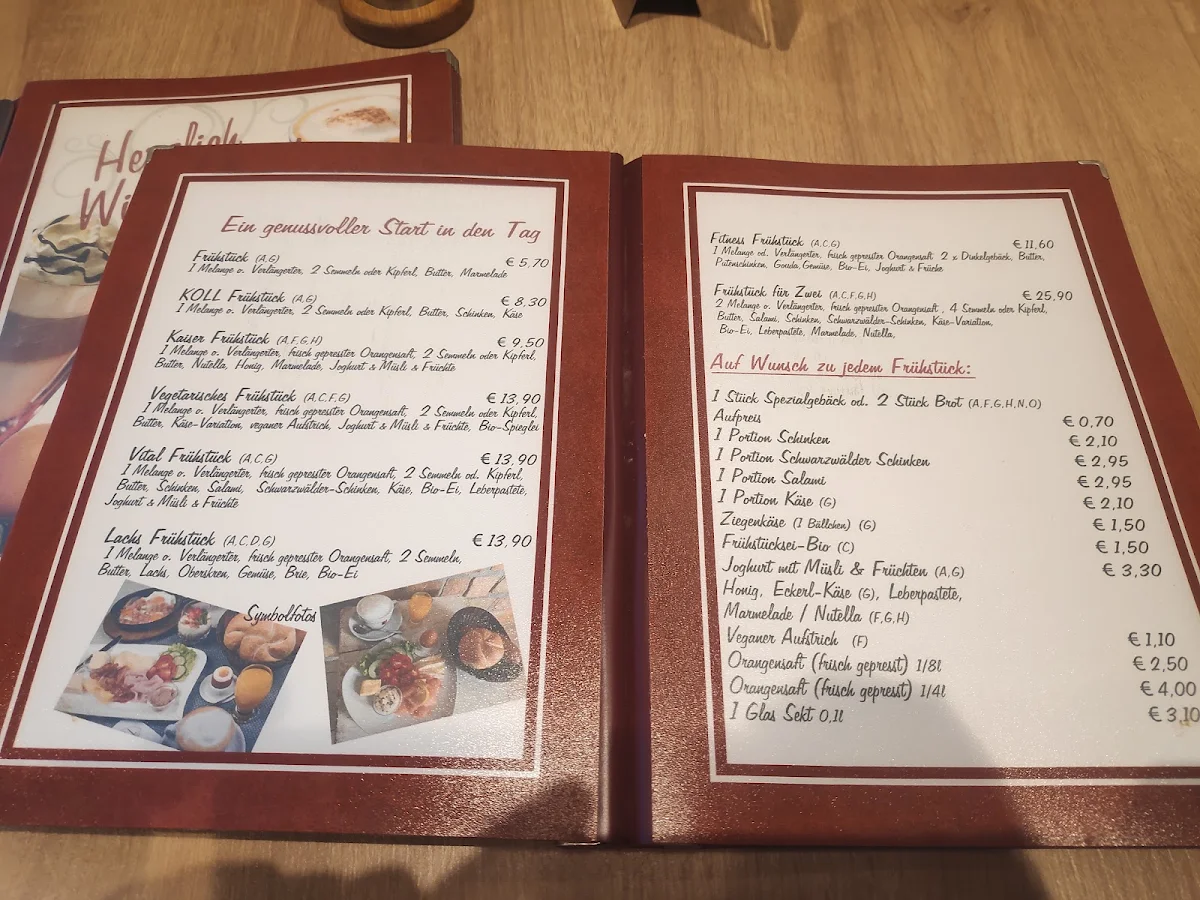 Herzlich
Ein genussvoller Start in den Tag
Frühstück (A,G) € 5,70
1 Melange o. Verlängerter, 2 Semmeln oder Kipferl, Butter, Marmelade
KOLL Frühstück (A,G) € 8,30
1 Melange o. Verlängerter, 2 Semmeln oder Kipferl, Butter, Schinken, Käse
Kaiser Frühstück (A,F,G,H) € 9,50
1 Melange o. Verlängerter, frisch gepresster Orangensaft, 2 Semmeln oder Kipferl,
Butter, Nutella, Honig, Marmelade, Joghurt & Müsli & Früchte
Vegetarisches Frühstück (A,C,F,G) € 13,90
1 Melange o. Verlängerter, frisch gepresster Orangensaft, 2 Semmeln oder Kipferl,
Butter, Käse-Variation, veganer Aufstrich, Joghurt & Müsli & Früchte, Bio-Spieglei
Vital Frühstück (A,C,G) € 13,90
1 Melange o. Verlängerter, frisch gepresster Orangensaft, 2 Semmeln od. Kipferl,
Butter, Schinken, Salami, Schwarzwälder-Schinken, Käse, Bio-Ei, Leberpastete,
Joghurt & Müsli & Früchte
Lachs Frühstück (A,C,D,G) € 13,90
1 Melange o. Verlängerter, frisch gepresster Orangensaft, 2 Semmeln,
Butter, Lachs, Oberskren, Gemüse, Brie, Bio-Ei
Symbolfotos
Fitness Frühstück (A,C,G) € 11,60
1 Melange od. Verlängerter, frisch gepresster Orangensaft 2 x Dinkelgebäck, Butter,
Putenschinken, Gouda, Gemüse, Bio-Ei, Joghurt & Früche
Frühstück für Zwei (A,C,F,G,H) € 25,90
2 Melange o. Verlängerter, frisch gepresster Orangensaft , 4 Semmeln oder Kipferl,
Butter, Salami, Schinken, Schwarzwälder-Schinken, Käse-Variation,
Bio-Ei, Leberpastete, Marmelade, Nutella,
Auf Wunsch zu jedem Frühstück:
1 Stück Spezialgebäck od. 2 Stück Brot (A,F,G,H,N,O)
Aufpreis € 0,70
1 Portion Schinken € 2,10
1 Portion Schwarzwälder Schinken € 2,95
1 Portion Salami € 2,95
1 Portion Käse (G) € 2,10
Ziegenkäse (1 Bällchen) (G) € 1,50
Frühstücksei-Bio (C) € 1,50
Joghurt mit Müsli & Früchten (A,G) € 3,30
Honig, Eckerl-Käse (G), Leberpastete,
Marmelade / Nutella (F,G,H) € 1,10
Veganer Aufstrich (F) € 2,50
Orangensaft (frisch gepresst) 1/8l € 4,00
Orangensaft (frisch gepresst) 1/4l € 3,10
1 Glas Sekt 0,1l